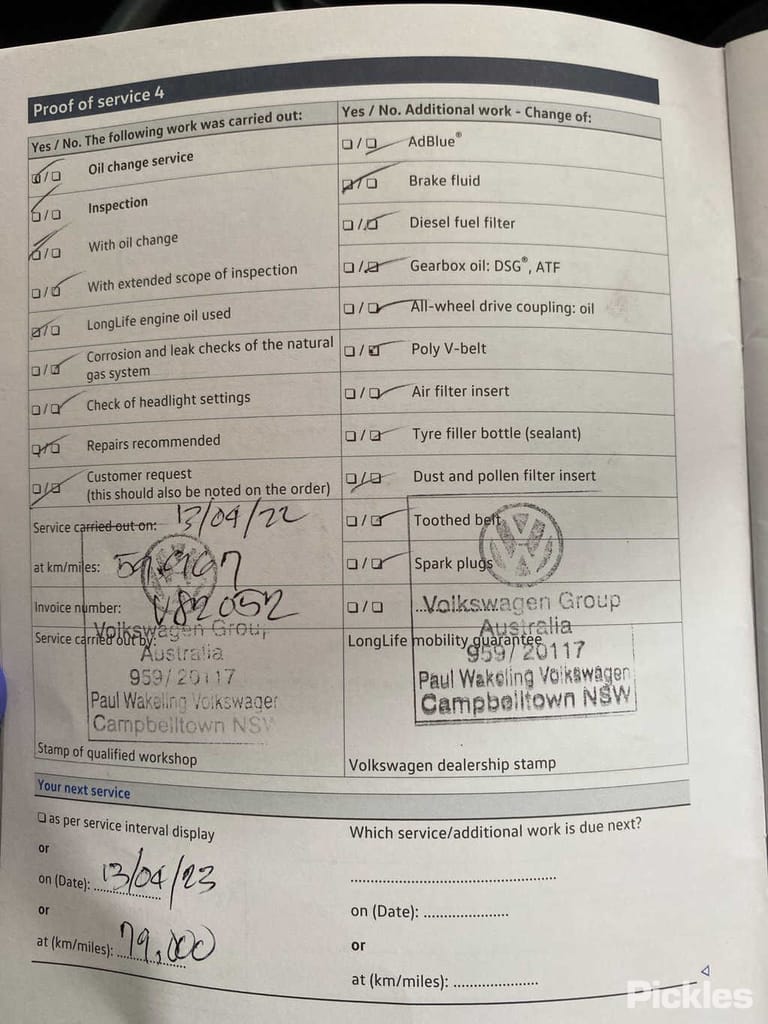 Proof of service 4
Yes / No. The following work was carried out:
☑/☐ Oil change service
☑/☐ Inspection
☑/☐ With oil change
☐/☑ With extended scope of inspection
☑/☐ LongLife engine oil used
☐/☑ Corrosion and leak checks of the natural
gas system
☐/☑ Check of headlight settings
Repairs recommended
☐/☑ Customer request
(this should also be noted on the order)
Service carried out on: 13/04/22
at km/miles:
Invoice number: V82052
Service carried out by:
Volkswagen Group
Australia
959/20117
Paul Wakeling Volkswagen
Campbelltown NSW
Stamp of qualified workshop
Yes / No. Additional work - Change of:
☐/☑ AdBlue®
☑/☐ Brake fluid
☐/☑ Diesel fuel filter
☐/☑ Gearbox oil: DSG®, ATF
☐/☑ All-wheel drive coupling: oil
☐/☑ Poly V-belt
☐/☑ Air filter insert
☐/☑ Tyre filler bottle (sealant)
☐/☑ Dust and pollen filter insert
☐/☑ Toothed belt
☐/☑ Spark plugs
☐/☐
LongLife mobility guarantee
Volkswagen Group
Australia
959/20117
Paul Wakeling Volkswagen
Campbelltown NSW
Volkswagen dealership stamp
Your next service
☐ as per service interval display
or
on (Date): 13/04/23
or
at (km/miles): 79,000
Which service/additional work is due next?
on (Date): .....................
or
at (km/miles): .....................
Pickles